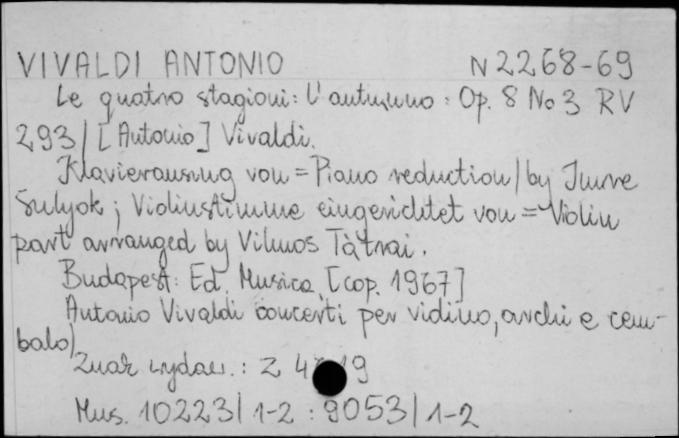 VIVALDI ANTONIO N 2268-69
Le quatro stagioni: L'autunno: Op. 8 No 3 RV
293/[Antonio] Vivaldi.
Klavierauszug von = Piano reduction/by Imre
Sulyok; Violinstimme eingerichtet von = Violin
part arranged by Vilmos Tàtrai.
Budapest: Ed. Musica, [cop. 1967]
Antonio Vivaldi concerti per violino, archi e cem-
balo)
Znak wydaw.: Z 4 19
Mus. 10223/1-2 : 9053/1-2